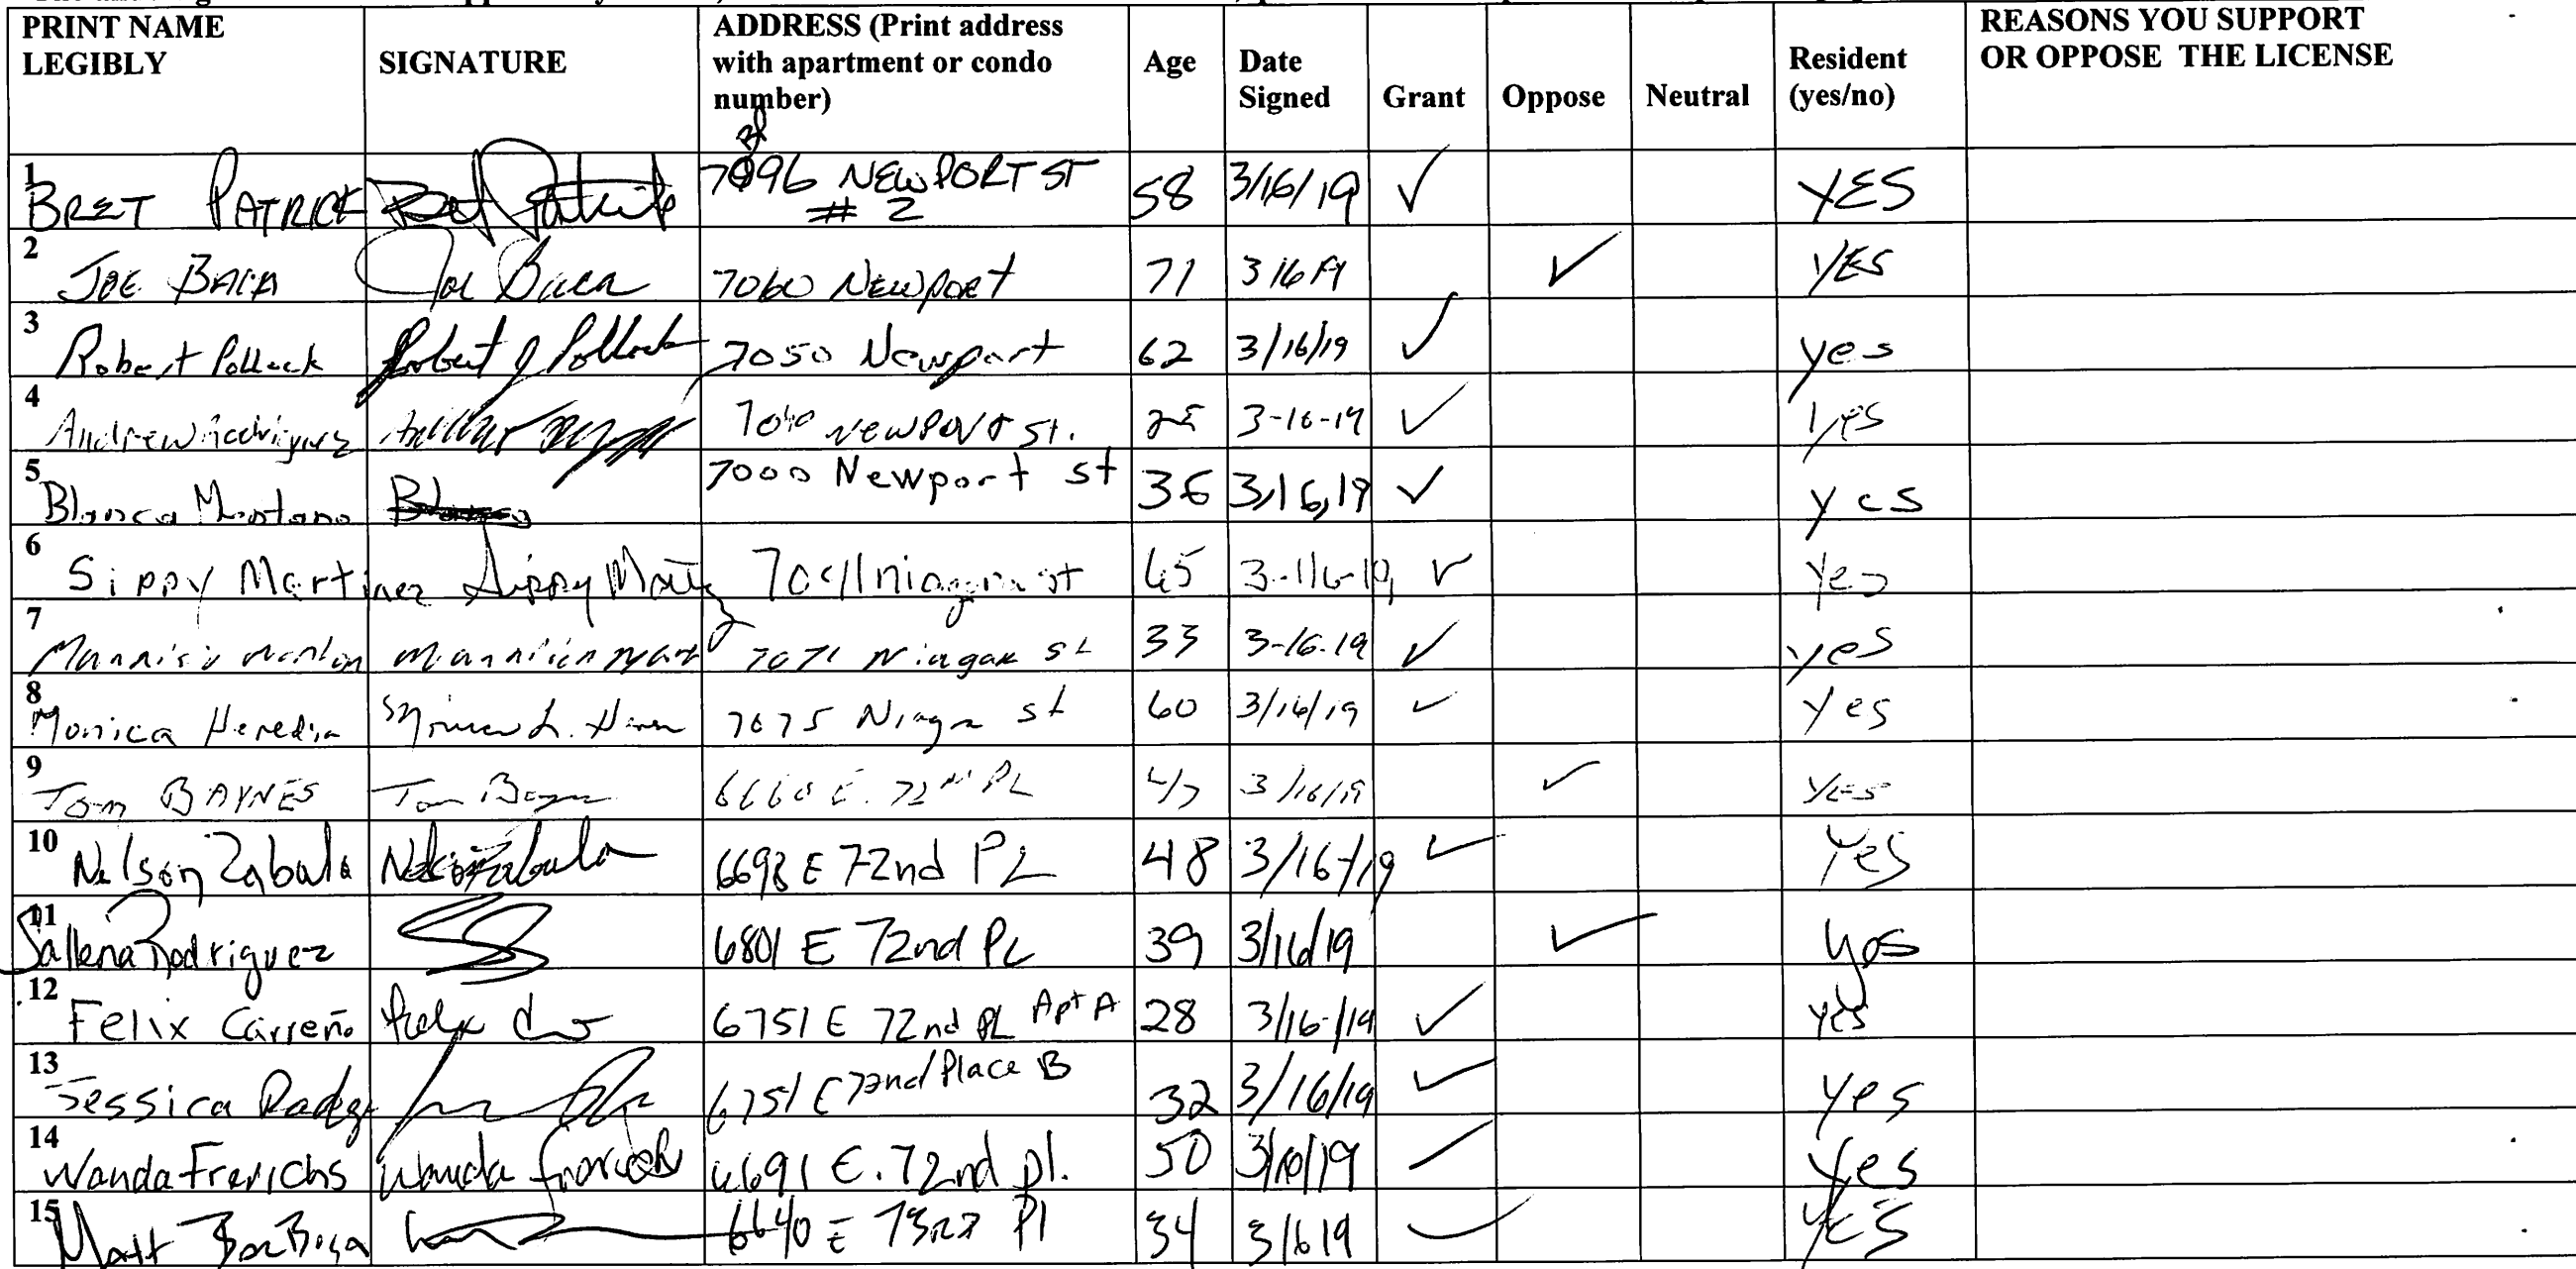 PRINT NAME LEGIBLY SIGNATURE ADDRESS (Print address with apartment or condo number) Age Date Signed Grant Oppose Neutral Resident (yes/no) REASONS YOU SUPPORT OR OPPOSE THE LICENSE
1 BRET PATRICK Bret Patrick 7096 NEWPORT ST # 2 58 3/16/19 ✓ YES
2 JOE BACA Joe Baca 7060 NEWPORT 71 3 16 YES
3 Robert Pollock Robert J Pollock 7050 Newport 62 3/16/19 ✓ yes
4 Andrew Rodriguez NEWPORT St. 25 3-16-19 ✓ yes
5 Blanca Montano 7000 Newport st 36 3,16,19 ✓ yes
6 Sippy Martinez Sippy niagara st 3-16-19 ✓ yes
7 33 3-16-19 ✓ yes
8 Monica Heredia 7075 st 60 3/16/19 ✓ yes
9 Tom BAYNES Tom E. 72nd PL 47 3/16/19 ✓ YES
10 Nelson Zabala Nelson Zabala 6693 E 72nd PL 48 3/16/19 ✓ Yes
11 Sallena Rodriguez 6801 E 72nd PL 39 3/16/19 ✓ yes
12 Felix Carreño Felix 6751 E 72nd PL Apt A 28 3/16/19 ✓ yes
13 Jessica 6751 E 72nd Place B 32 3/16/19 ✓ yes
14 Wanda Frerichs Wanda Frerichs 6691 E. 72nd pl. 50 3/16/19 ✓ Yes
15 Matt BarBosa 6640 E 73rd Pl 34 3/16 19 ✓ YES